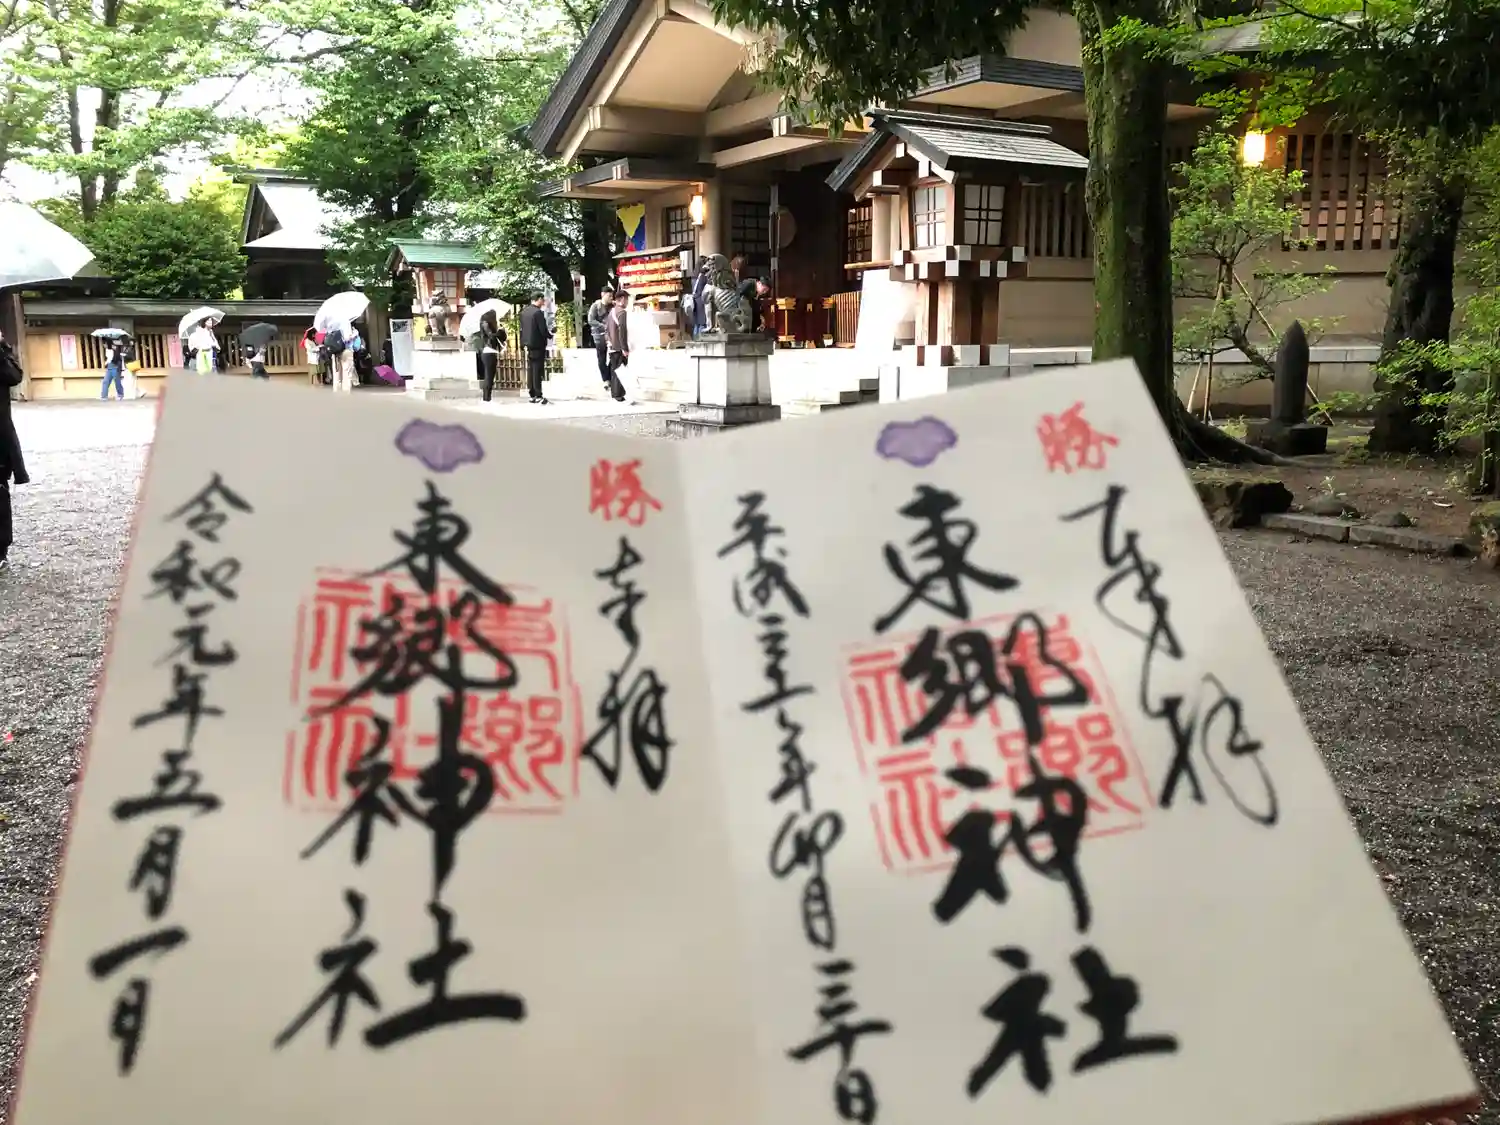 勝
奉拝
東郷神社
東郷
神社
平成三十一年卯月三十日
勝
奉拝
東郷神社
東郷
神社
令和元年五月一日